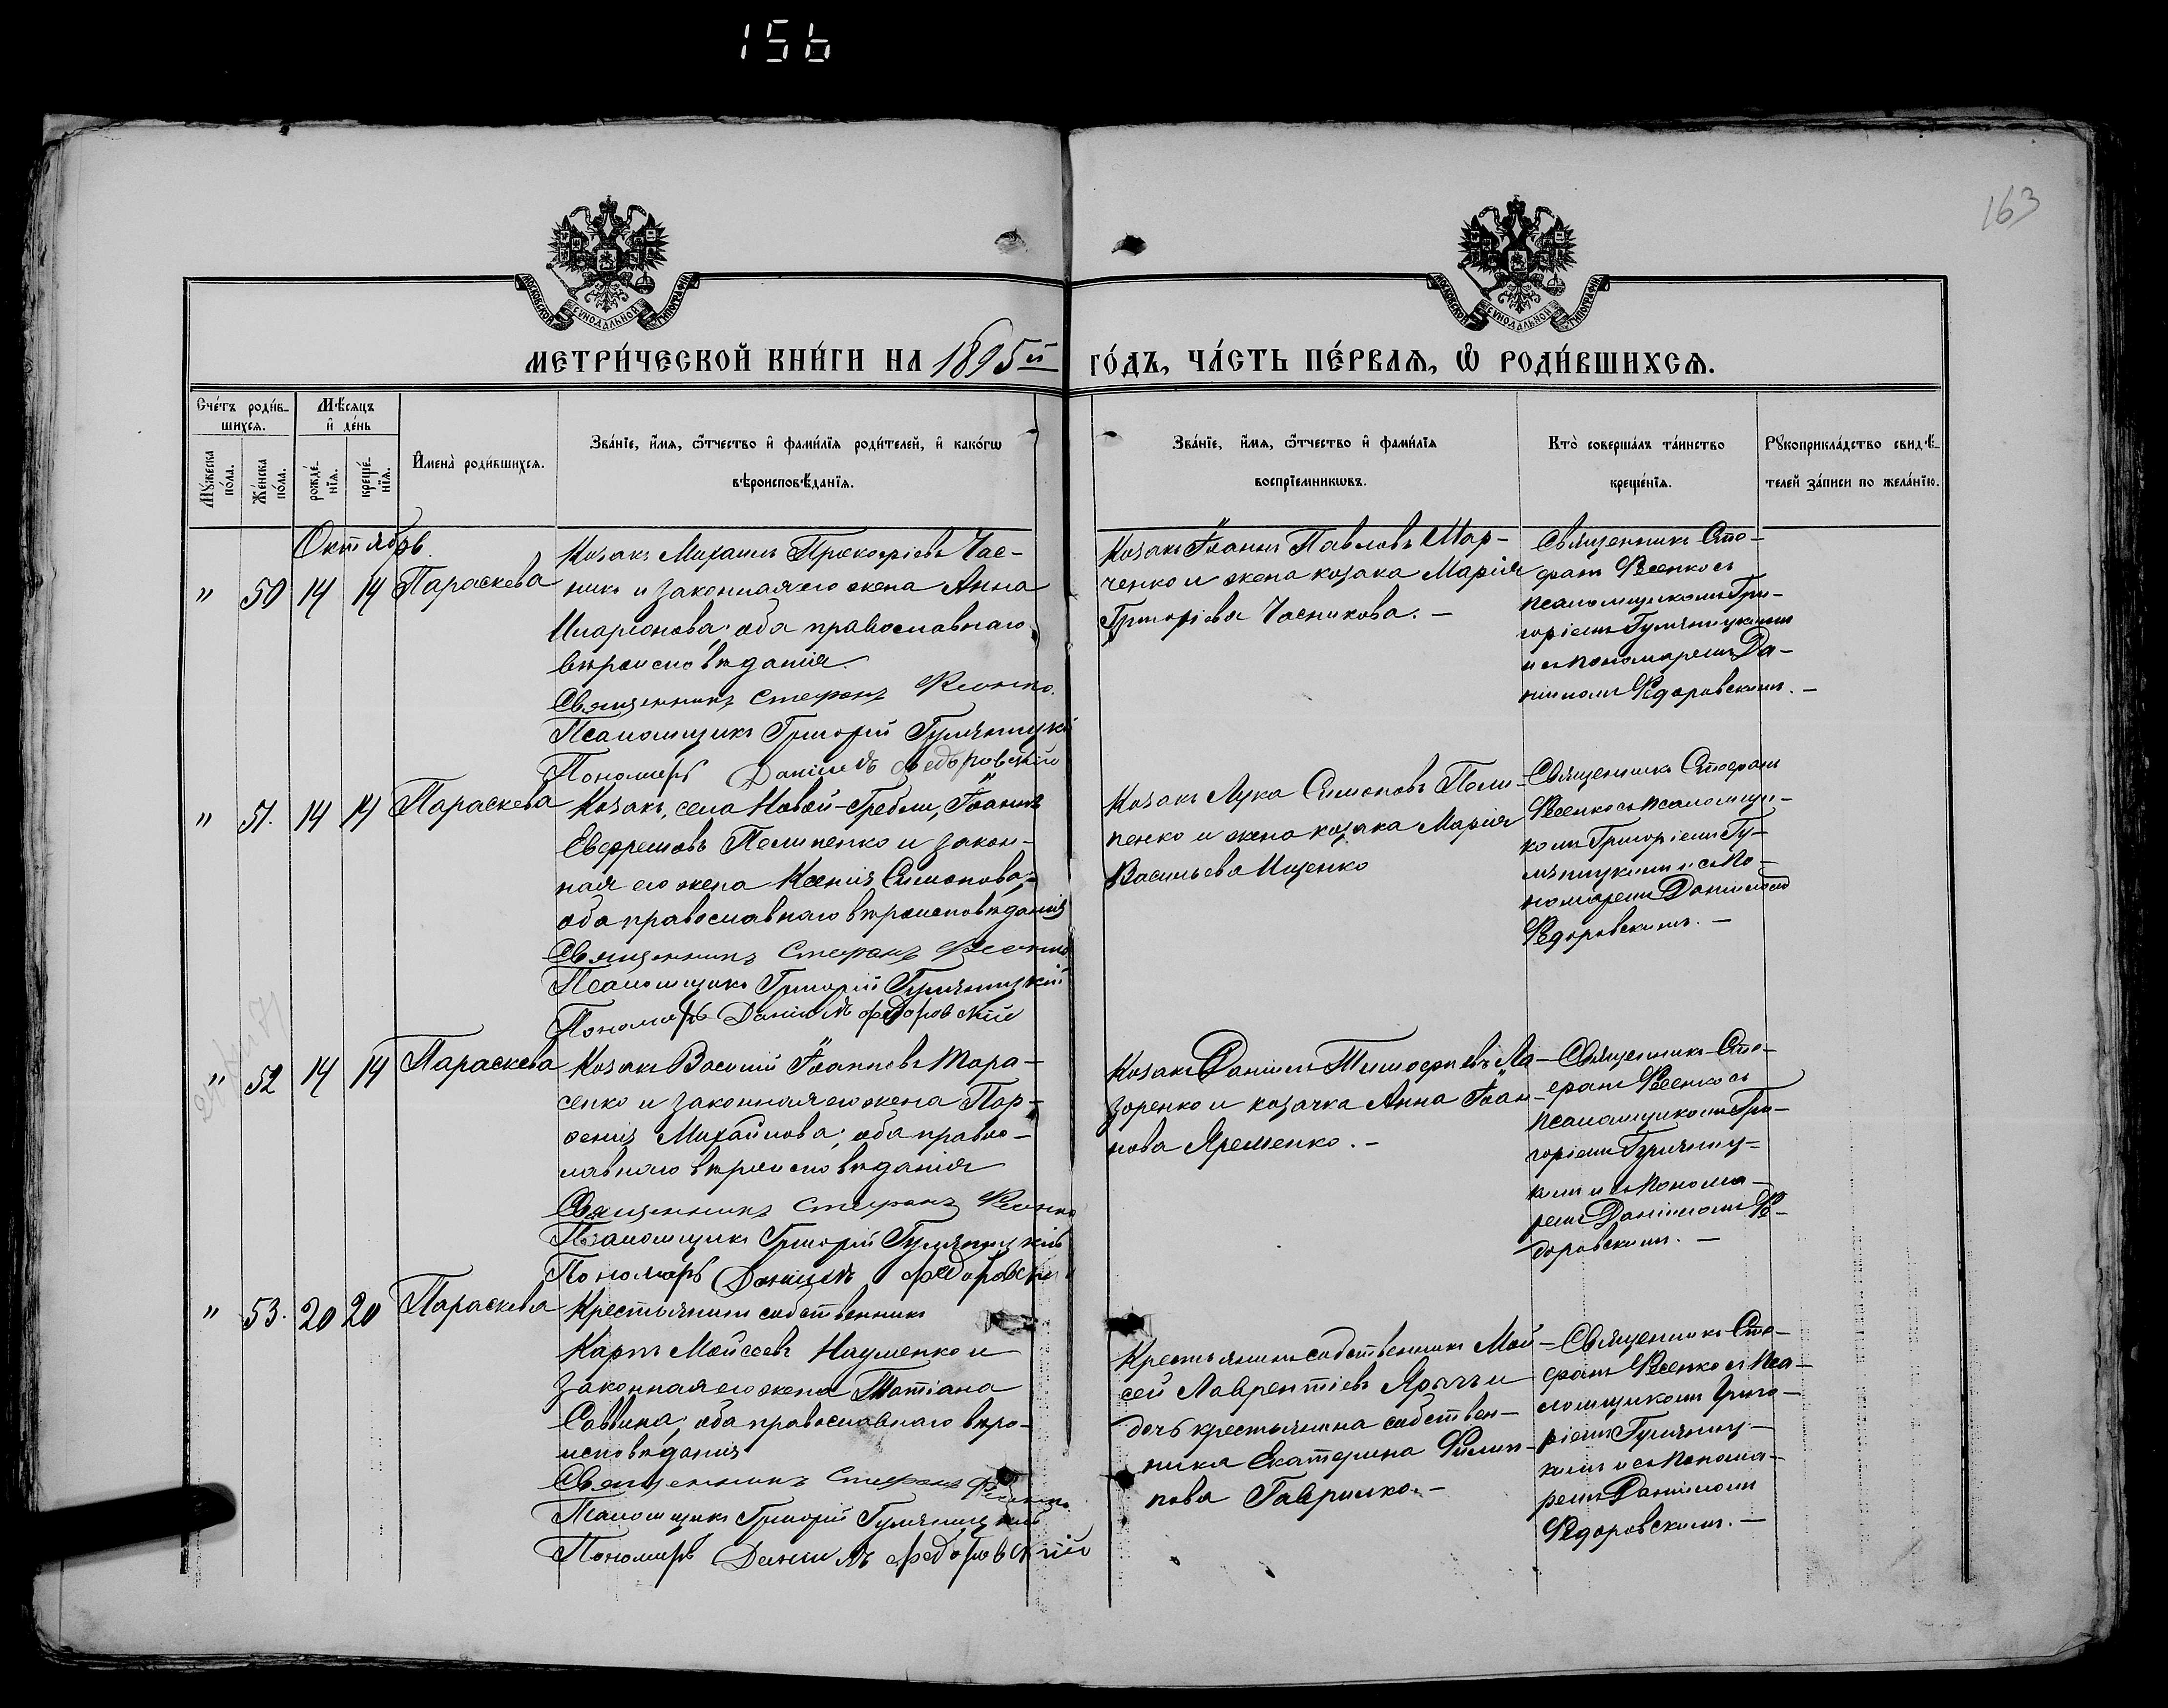 156
163
МОСКОВСКОЙ СѴНОДАЛЬНОЙ ТИПОГРАФІИ
МОСКОВСКОЙ СѴНОДАЛЬНОЙ ТИПОГРАФІИ
МЕТРИ́ЧЕСКОЙ КНИ́ГИ НА 1895й ГО́ДЪ, ЧА́СТЬ ПЕ́РВАЯ, Ѽ РОДИ́ВШИХСЯ.
Сче́тъ роди́в-
шихся.
Мѣ́сяцъ
и҆ де́нь
Мꙋ́жеска
по́ла.
Же́нска
по́ла.
рожде́-
нїя.
креще́-
нїя.
И҆мена̀ роди́вшихся.
Зва́нїе, и҆́мя, ѻ҆́тчество и҆ фами́лїя роди́телей, и҆ како́гѡ
вѣроисповѣ́данїя.
Зва́нїе, и҆́мя, ѻ҆́тчество и҆ фами́лїя
воспрїе́мникѡвъ.
Кто̀ соверша́лъ та́инство
креще́нїя.
Рꙋкоприкла́дство свидѣ́-
телей за́писи по жела́нїю.
Октябрь.
" 50 14 14 Параскева
Козакъ Михаилъ Прокофіевъ Час-
никъ и законная его жена Анна
Иларіонова; оба православнаго
вѣроисповѣданія
Священникъ Стефанъ Ѳесенко.
Псаломщикъ Григорій Гумяницкій
Пономарь Даніилъ Федоровскій
Козакъ Іоаннъ Павловъ Мар-
ченко и жена козака Марія
Григоріева Часникова. —
Священникъ Сте-
фанъ Ѳесенко съ
псаломщикомъ Гри-
горіемъ Гумяницкимъ
и съ пономаремъ Да-
ніиломъ Ѳедоровскимъ. —
" 51. 14 14 Параскева
Козакъ, села Новой-Гребли, Іоаннъ
Евфремовъ Пелипенко и закон-
ная его жена Ксенія Симонова;
оба православнаго вѣроисповѣданія
Священникъ Стефанъ Ѳесенко
Псаломщикъ Григорій Гумяницкій
Пономарь Даніилъ Федоровскій
Козакъ Лука Симоновъ Пели-
пенко и жена козака Марія
Васильева Ищенко
Священникъ Стефанъ
Ѳесенко съ псаломщи-
комъ Григоріемъ Гу-
мяницкимъ и съ по-
номаремъ Даніиломъ
Ѳедоровскимъ. —
" 52 14 14 Параскева
Козакъ Василій Іоанновъ Тара-
сенко и законная его жена Пар-
ѳенія Михайлова; оба право-
славнаго вѣроисповѣданія
Священникъ Стефанъ Ѳесенко
Псаломщикъ Григорій Гумяницкій
Пономарь Даніилъ Федоровскій
Козакъ Даніилъ Тимоѳеевъ Ла-
зоренко и козачка Анна Іоан-
нова Яременко. —
Священникъ Сте-
фанъ Ѳесенко съ
псаломщикомъ Гри-
горіемъ Гумяниц-
кимъ и съ понома-
ремъ Даніиломъ Ѳе-
доровскимъ. —
" 53. 20 20 Параскева
Крестьянинъ собственникъ
Карпъ Моѵсеевъ Науменко и
законная его жена Татіана
Саввина; оба православнаго вѣро-
исповѣданія
Священникъ Стефанъ Ѳесенко
Псаломщикъ Григорій Гумяницкій
Пономарь Даніилъ Федоровскій
Крестьянинъ собственникъ Мой-
сей Лаврентіевъ Ярычъ и
дочь крестьянина собствен-
ника Екатерина Филип-
пова Гаврилко. —
Священникъ Сте-
фанъ Ѳесенко съ пса-
ломщикомъ Григо-
ріемъ Гумяниц-
кимъ и съ понома-
ремъ Даніиломъ
Ѳедоровскимъ. —